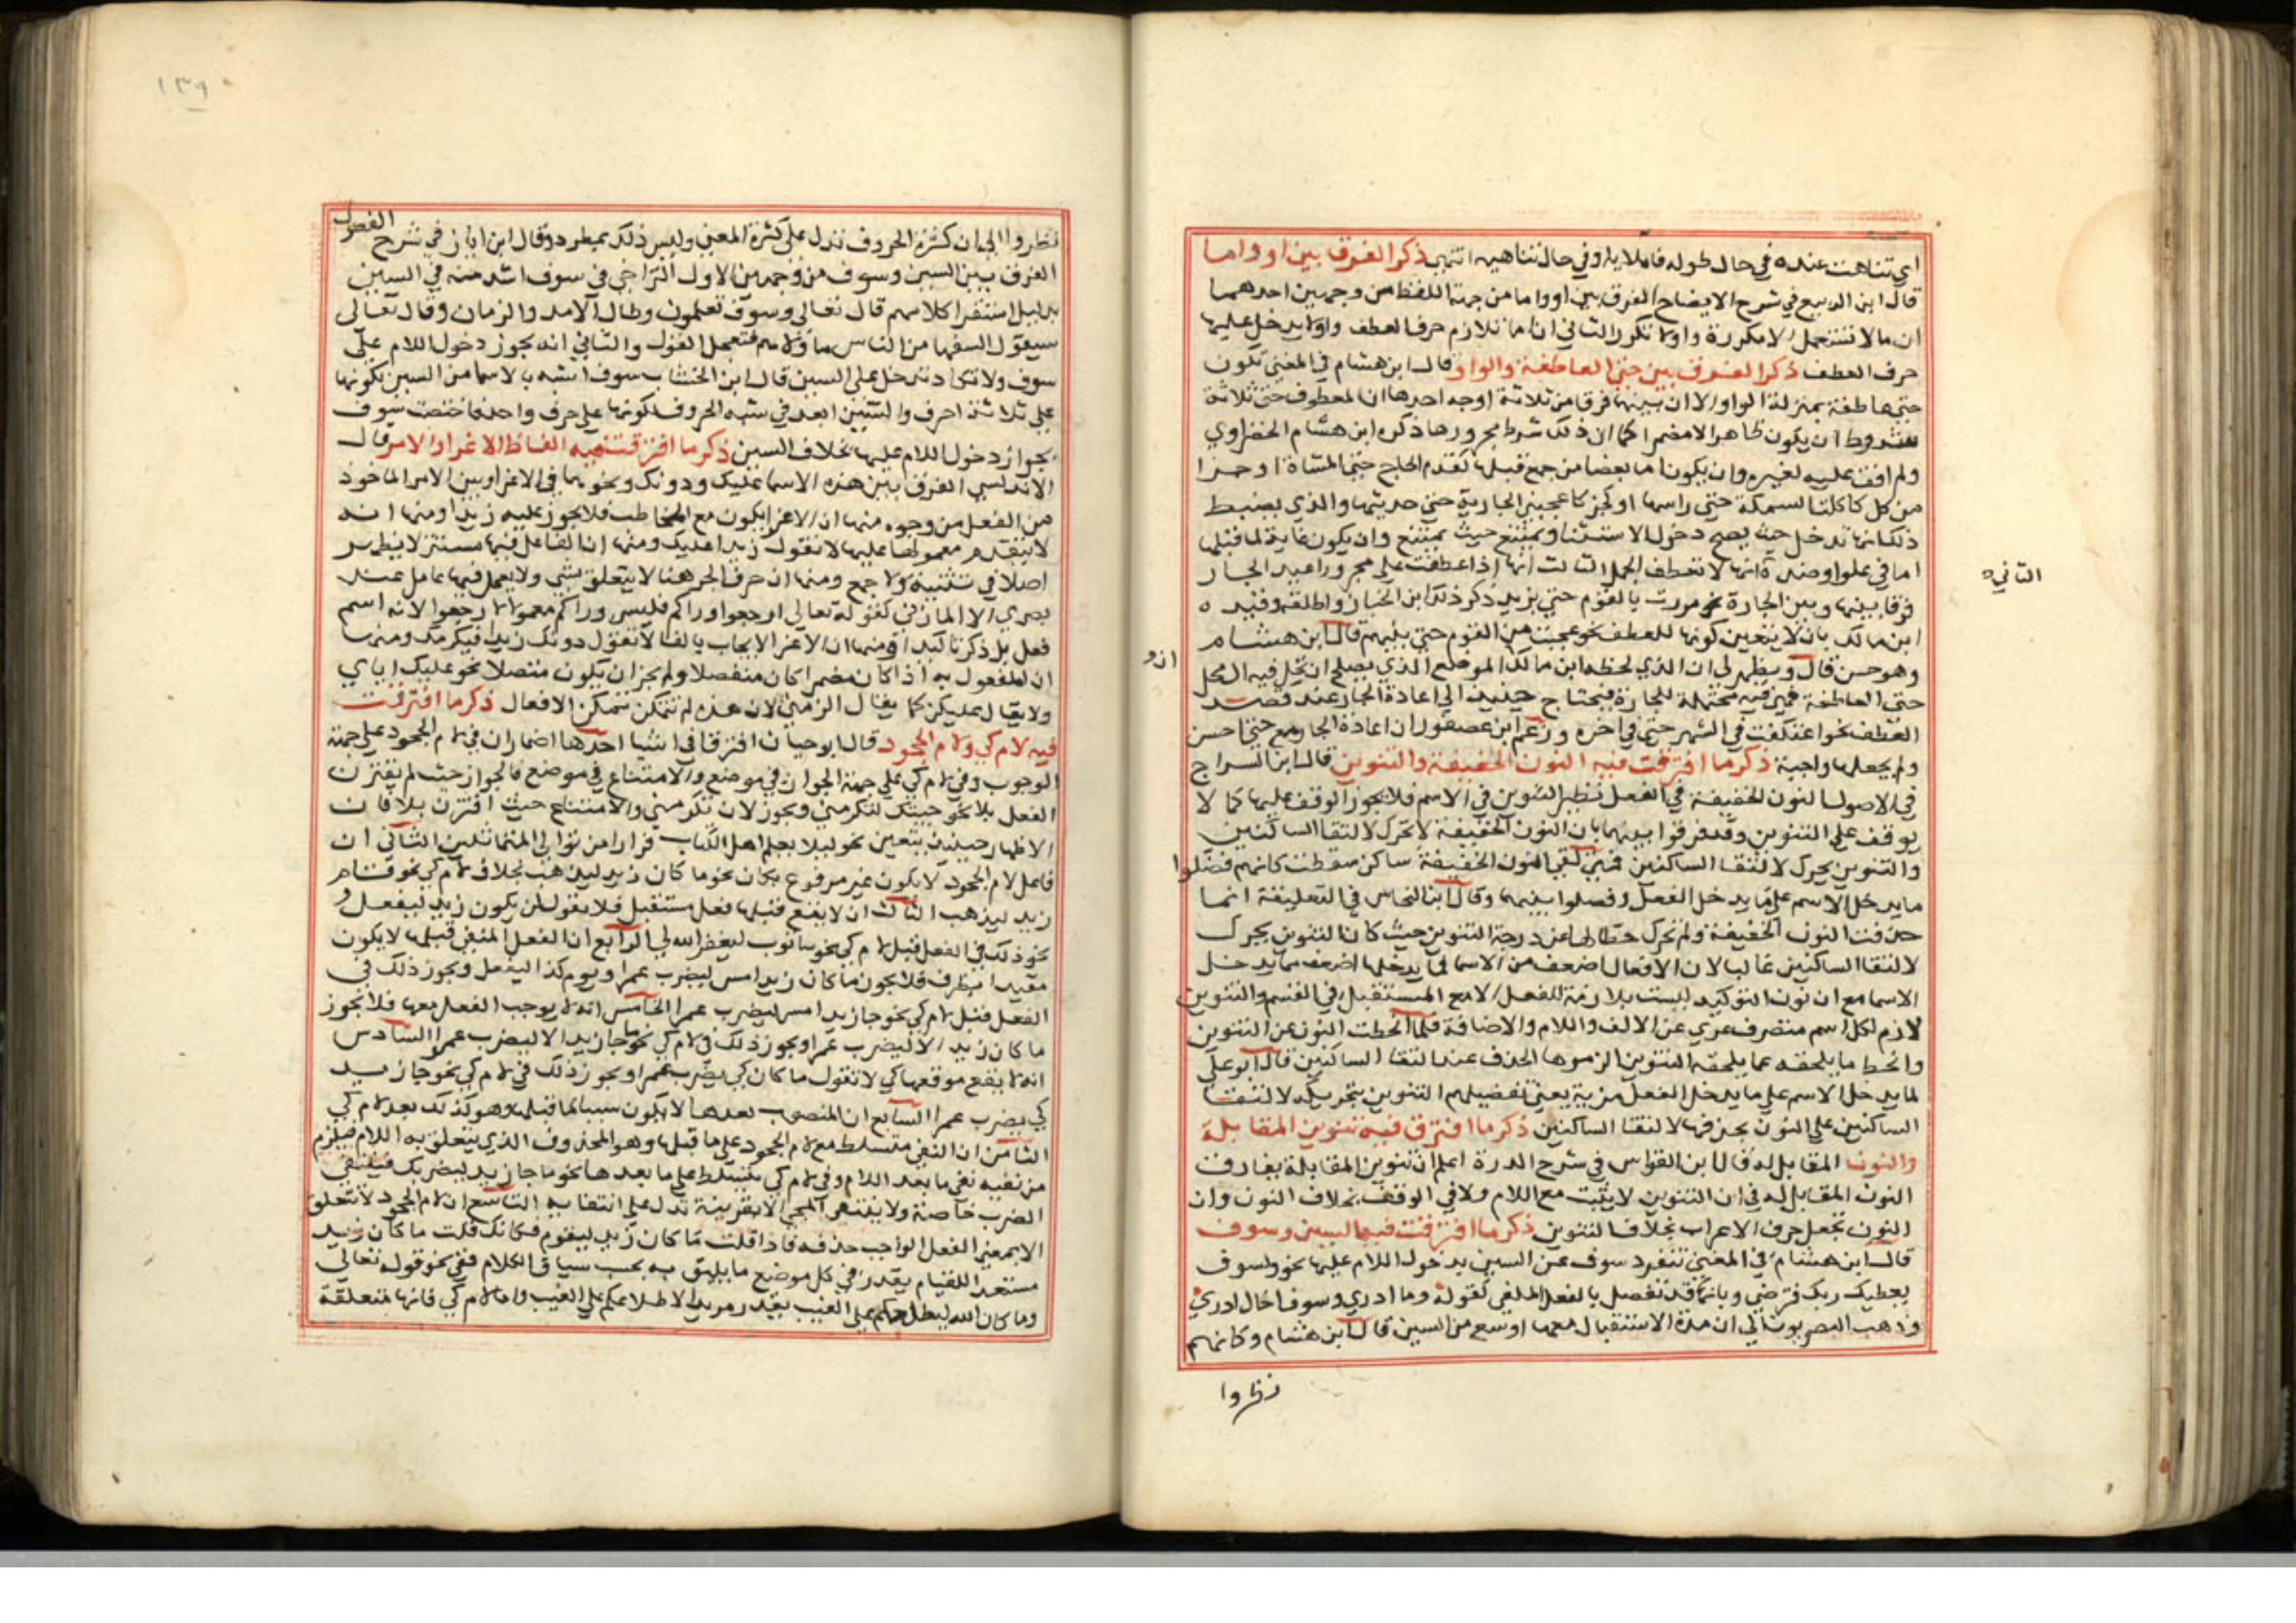 اي تناهت عنده في حال طوله فاملا يله وفي حال تناهيه انتهى ذكر الفرق بين او واما
قال ابن الربيع في شرح الايضاح الفرق بين او واما من جهة اللفظ من وجهين احدهما
ان ما لا تستعمل الا مكررة واو لا تكرر الثاني ان اما تلازم حرف العطف واو لا يدخل عليها
حرف العطف ذكر الفرق بين حتى العاطفة والواو قال ابن هشام في المغني تكون
حتى عاطفة بمنزلة الواو الا ان بينهما فرق من ثلاثة اوجه احدها ان لمعطوف حتى ثلاثة
شروط ان يكون ظاهرا لا مضمرا كما ان ذلك شرط مجرورها ذكره ابن هشام الخضراوي
ولم اقف عليه لغيره وان يكون اما بعضا من جمع قبلها كقدم الحاج حتى المشاة او جزا
من كل كاكلت السمكة حتى راسها او كجز كاعجبتني الجارية حتى حديثها والذي يضبط
ذلك انها تدخل حيث يصح دخول الاستثنا ويمتنع حيث يمتنع وان يكون غاية لما قبلها
اما في علو او ضده انها لا تعطف الجمل الثالث انها اذا عطفت على مجرور اعيد الجار
الثاني
فرقا بينها وبين الجارة نحو مررت بالقوم حتى بزيد ذكر ذلك ابن الخباز واطلقه وقيده
ابن مالك بان لا يتعين كونها للعطف نحو عجبت من القوم حتى بنيهم قال ابن هشام
وهو حسن قال ويظهر لي ان الذي لحظه ابن مالك الموضع الذي يصلح ان تحل فيه الى محل
حتى العاطفة فهي فيه محتملة للجارة فيحتاج حينيذ الى اعادة الجار عند قصد
العطف نحو اعتكفت في الشهر حتى في اخره وزعم ابن عصفور ان اعادة الجار مع حتى احسن
ولم يجعلها واجبة ذكر ما افترقت فيه النون الخفيفة والتنوين قال ابن السراج
في الاصول النون الخفيفة في الفعل نظير التنوين في الاسم فلا يجوز الوقف عليها كما لا
يوقف على التنوين وقد فرقوا بينهما بان النون الخفيفة لا تحرك لالتقا الساكنين
والتنوين يحرك لالتقا الساكنين فمتى لقي النون الخفيفة ساكن سقطت كانهم فضلوا
ما يدخل الاسم على ما يدخل الفعل وفصلوا بينهما وقال ابن النحاس في التعليقة انما
حذفت النون الخفيفة ولم تحرك حطا لها عن درجة التنوين حيث كان التنوين يحرك
لالتقا الساكنين غالبا لان الافعال اضعف من الاسما فما يدخلها اضعف مما يدخل
الاسما مع ان نون التوكيد ليست بلازمة للفعل الا مع المستقبل في القسم والتنوين
لازم لكل اسم منصرف عري عن الالف واللام والاضافة فلما انحطت النون عن التنوين
وانحط ما يلحقه عما يلحقه التنوين الزموها الحذف عند التقا الساكنين قال ابو علي
لما يدخل الاسم على ما يدخل الفعل مزية يعني تفضيلهم التنوين بتحريكه لالتقا
الساكنين على النون بحذفها لالتقا الساكنين ذكر ما افترق فيه تنوين المقابلة
والنون المقابل له قال ابن القواس في شرح الدرة اعلم ان تنوين المقابلة يفارق
النون المقابل له في ان التنوين لا يثبت مع اللام ولا في الوقف بخلاف النون وان
النون تجعل حرف الاعراب بخلاف التنوين ذكر ما افترقت فيه السين وسوف
قال ابن هشام في المغني تنفرد سوف عن السين بدخول اللام عليها نحو ولسوف
يعطيك ربك فترضى وبانها قد تفصل بالفعل الملغى كقوله وما ادري وسوف اخال ادري
وذهب البصريون الى ان مدة الاستقبال معها اوسع من السين قال ابن هشام وكانهم
نظروا
١٣٩
نظروا الى ان كثرة الحروف تدل على كثرة المعنى وليس ذلك بمطرد وقال ابن اياز في شرح الفصول
الفرق بين السين وسوف من وجهين الاول التراخي في سوف اشد منه في السين
بدليل استقرا كلامهم قال تعالى وسوف تعلمون وطال الامد والزمان وقال تعالى
سيقول السفها من الناس ما ولاهم فتعجل القول والثاني انه يجوز دخول اللام على
سوف ولا تكاد تدخل على السين قال ابن الخشاب سوف اشبه بالاسما من السين لكونها
على ثلاثة احرف والسين اقعد في شبه الحروف لكونها على حرف واحد فاختصت سوف
بجواز دخول اللام عليها بخلاف السين ذكر ما افترقت فيه الفاظ الاغرا والامر قال
الاندلسي الفرق بين هذه الاسما عليك ودونك ونحوهما في الاغرا وبين الامر الماخوذ
من الفعل من وجوه منها ان الاغرا يكون مع المخاطب فلا يجوز عليه زيدا ومنها انه
لا يتقدم معمولها عليها لا تقول زيدا عليك ومنها ان الفاعل فيها مستتر لا يظهر
اصلا في تثنية ولا جمع ومنها ان حرف الجر هنا لا يتعلق بشي ولا يعمل فيها عامل عند
بصري الا المازني كقوله تعالى ارجعوا وراكم فليس وراكم معمولا لارجعوا لانه اسم
فعل بل ذكر تاكيدا ومنها ان الاغرا لا يجاب بالفا لا تقول دونك زيدا فيكرمك ومنها
ان المفعول به اذا كان مضمرا كان منفصلا ولم يجز ان يكون متصلا نحو عليك اياي
ولا يقال عليكن كما يقال الزمني لان هذه لم تتمكن تمكن الافعال ذكر ما افترقت
فيه لام كي ولام الجحود قال ابو حيان افترقا في اشيا احدها اضمار ان في لام الجحود على جهة
الوجوب وفي لام كي على جهة الجواز في موضع والامتناع في موضع فالجواز حيث لم يقترن
الفعل بلا نحو جيتك لتكرمني ويجوز لان تكرمني والامتناع حيث اقترن بلا فان
الاظهار حينيذ يتعين نحو ليلا يعلم اهل الكتاب فرارا من توالي المتماثلين الثاني ان
فاعل لام الجحود لا يكون غير مرفوع كان نحو ما كان زيد ليذهب بخلاف لام كي نحو قام
زيد ليذهب الثالث ان لا يقع قبلها فعل مستقبل فلا يقول لن يكون زيد ليفعل و
نحو ذلك في الفعل قبل لام كي نحو ساتوب ليغفر الله لي الرابع ان الفعل المنفي قبلها لا يكون
مقيدا بظرف فلا يجوز ما كان زيد امس ليضرب عمرا ويوم كذا ليفعل ويجوز ذلك في
الفعل قبل لام كي نحو جا زيد امس ليضرب عمرا الخامس انه لا يوجب الفعل معها فلا يجوز
ما كان زيد الا ليضرب عمرا ويجوز ذلك في لام كي نحو ما جا زيد الا ليضرب عمرا السادس
انه لا يقع موقعها كي لا تقول ما كان كي يضرب عمرا ويجوز ذلك في لام كي نحو جا زيد
كي يضرب عمرا السابع ان المنصوب بعدها لا يكون سببا لما قبلها وهو كذلك بعد لام كي
الثامن ان النفي متسلط مع لام الجحود على ما قبلها وهو المحذوف الذي يتعلق به اللام فيلزم
من نفيه نفي ما بعد اللام وفي لام كي يتسلط على ما بعدها نحو ما جا زيد ليضربك فينتفي
الضرب خاصة ولا ينتفي المجي الا بقرينة تدل على انتفا به التاسع ان لام الجحود لا تتعلق
الا بمعنى الفعل الواجب حذفه فاذا قلت ما كان زيد ليقوم فكانك قلت ما كان زيد
مستعدا للقيام يقدر في كل موضع ما يليق به بحسب سياق الكلام ففي نحو قوله تعالى
وما كان الله ليطلعكم على الغيب يقدر مريدا لاطلاعكم على الغيب واما لام كي فانها متعلقة